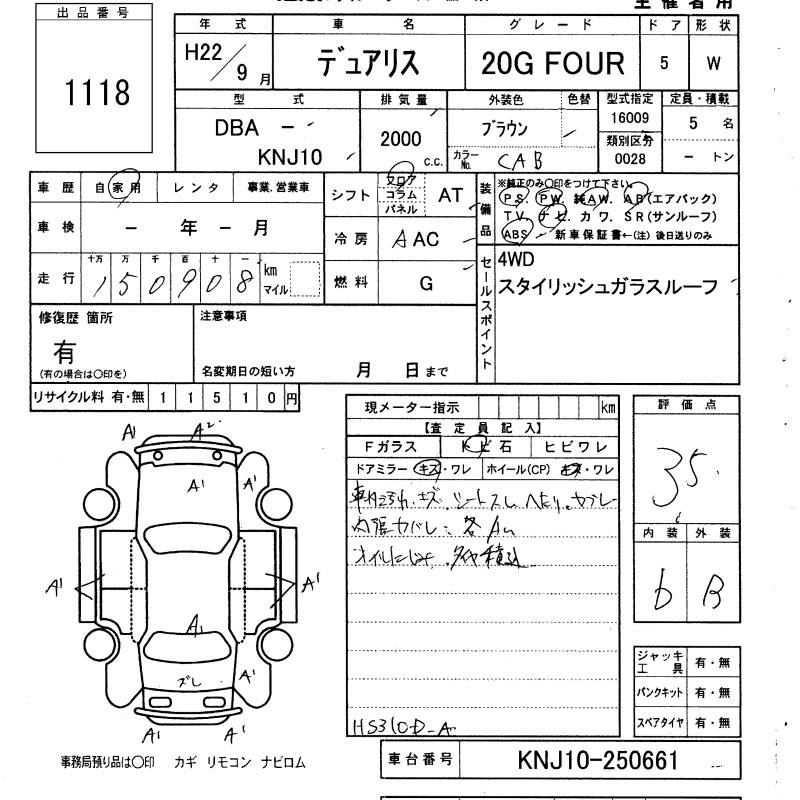 出品番号
1118
年式 車名 グレード ドア 形状
H22/9月 デュアリス 20G FOUR 5 W
型式 排気量 外装色 色替 型式指定 定員・積載
DBA - 2000 c.c. ブラウン 16009 5 名
KNJ10 カラーNo. CAB 類別区分 0028 - トン
車歴 自家用 レンタ 事業.営業車
シフト フロア コラム パネル AT
装備品 ※純正のみ〇印をつけて下さい。
P S. P W. 純A W. A B(エアバック)
T V. ナビ. カワ. S R(サンルーフ)
ABS 新車保証書←(注)後日送りのみ
車検 - 年 - 月
冷房 A AC
走行 十万 万 千 百 十 一 km マイル
150908
燃料 G
セールスポイント
4WD
スタイリッシュガラスルーフ
修復歴 箇所
有
(有の場合は〇印を)
注意事項
名変期日の短い方 月 日まで
リサイクル料 有・無 11510円
現メーター指示 km
【査定員記入】
Fガラス トビ石 ヒビワレ
ドアミラー キズ・ワレ ホイール(CP) キズ・ワレ
評価点
3.5
内装 外装
b B
A1 A2
A1 A1
A1 A1
A1
ズレ A1
A1 A1
ジャッキ工具 有・無
パンクキット 有・無
スペアタイヤ 有・無
事務局預り品は〇印 カギ リモコン ナビロム
車台番号 KNJ10-250661